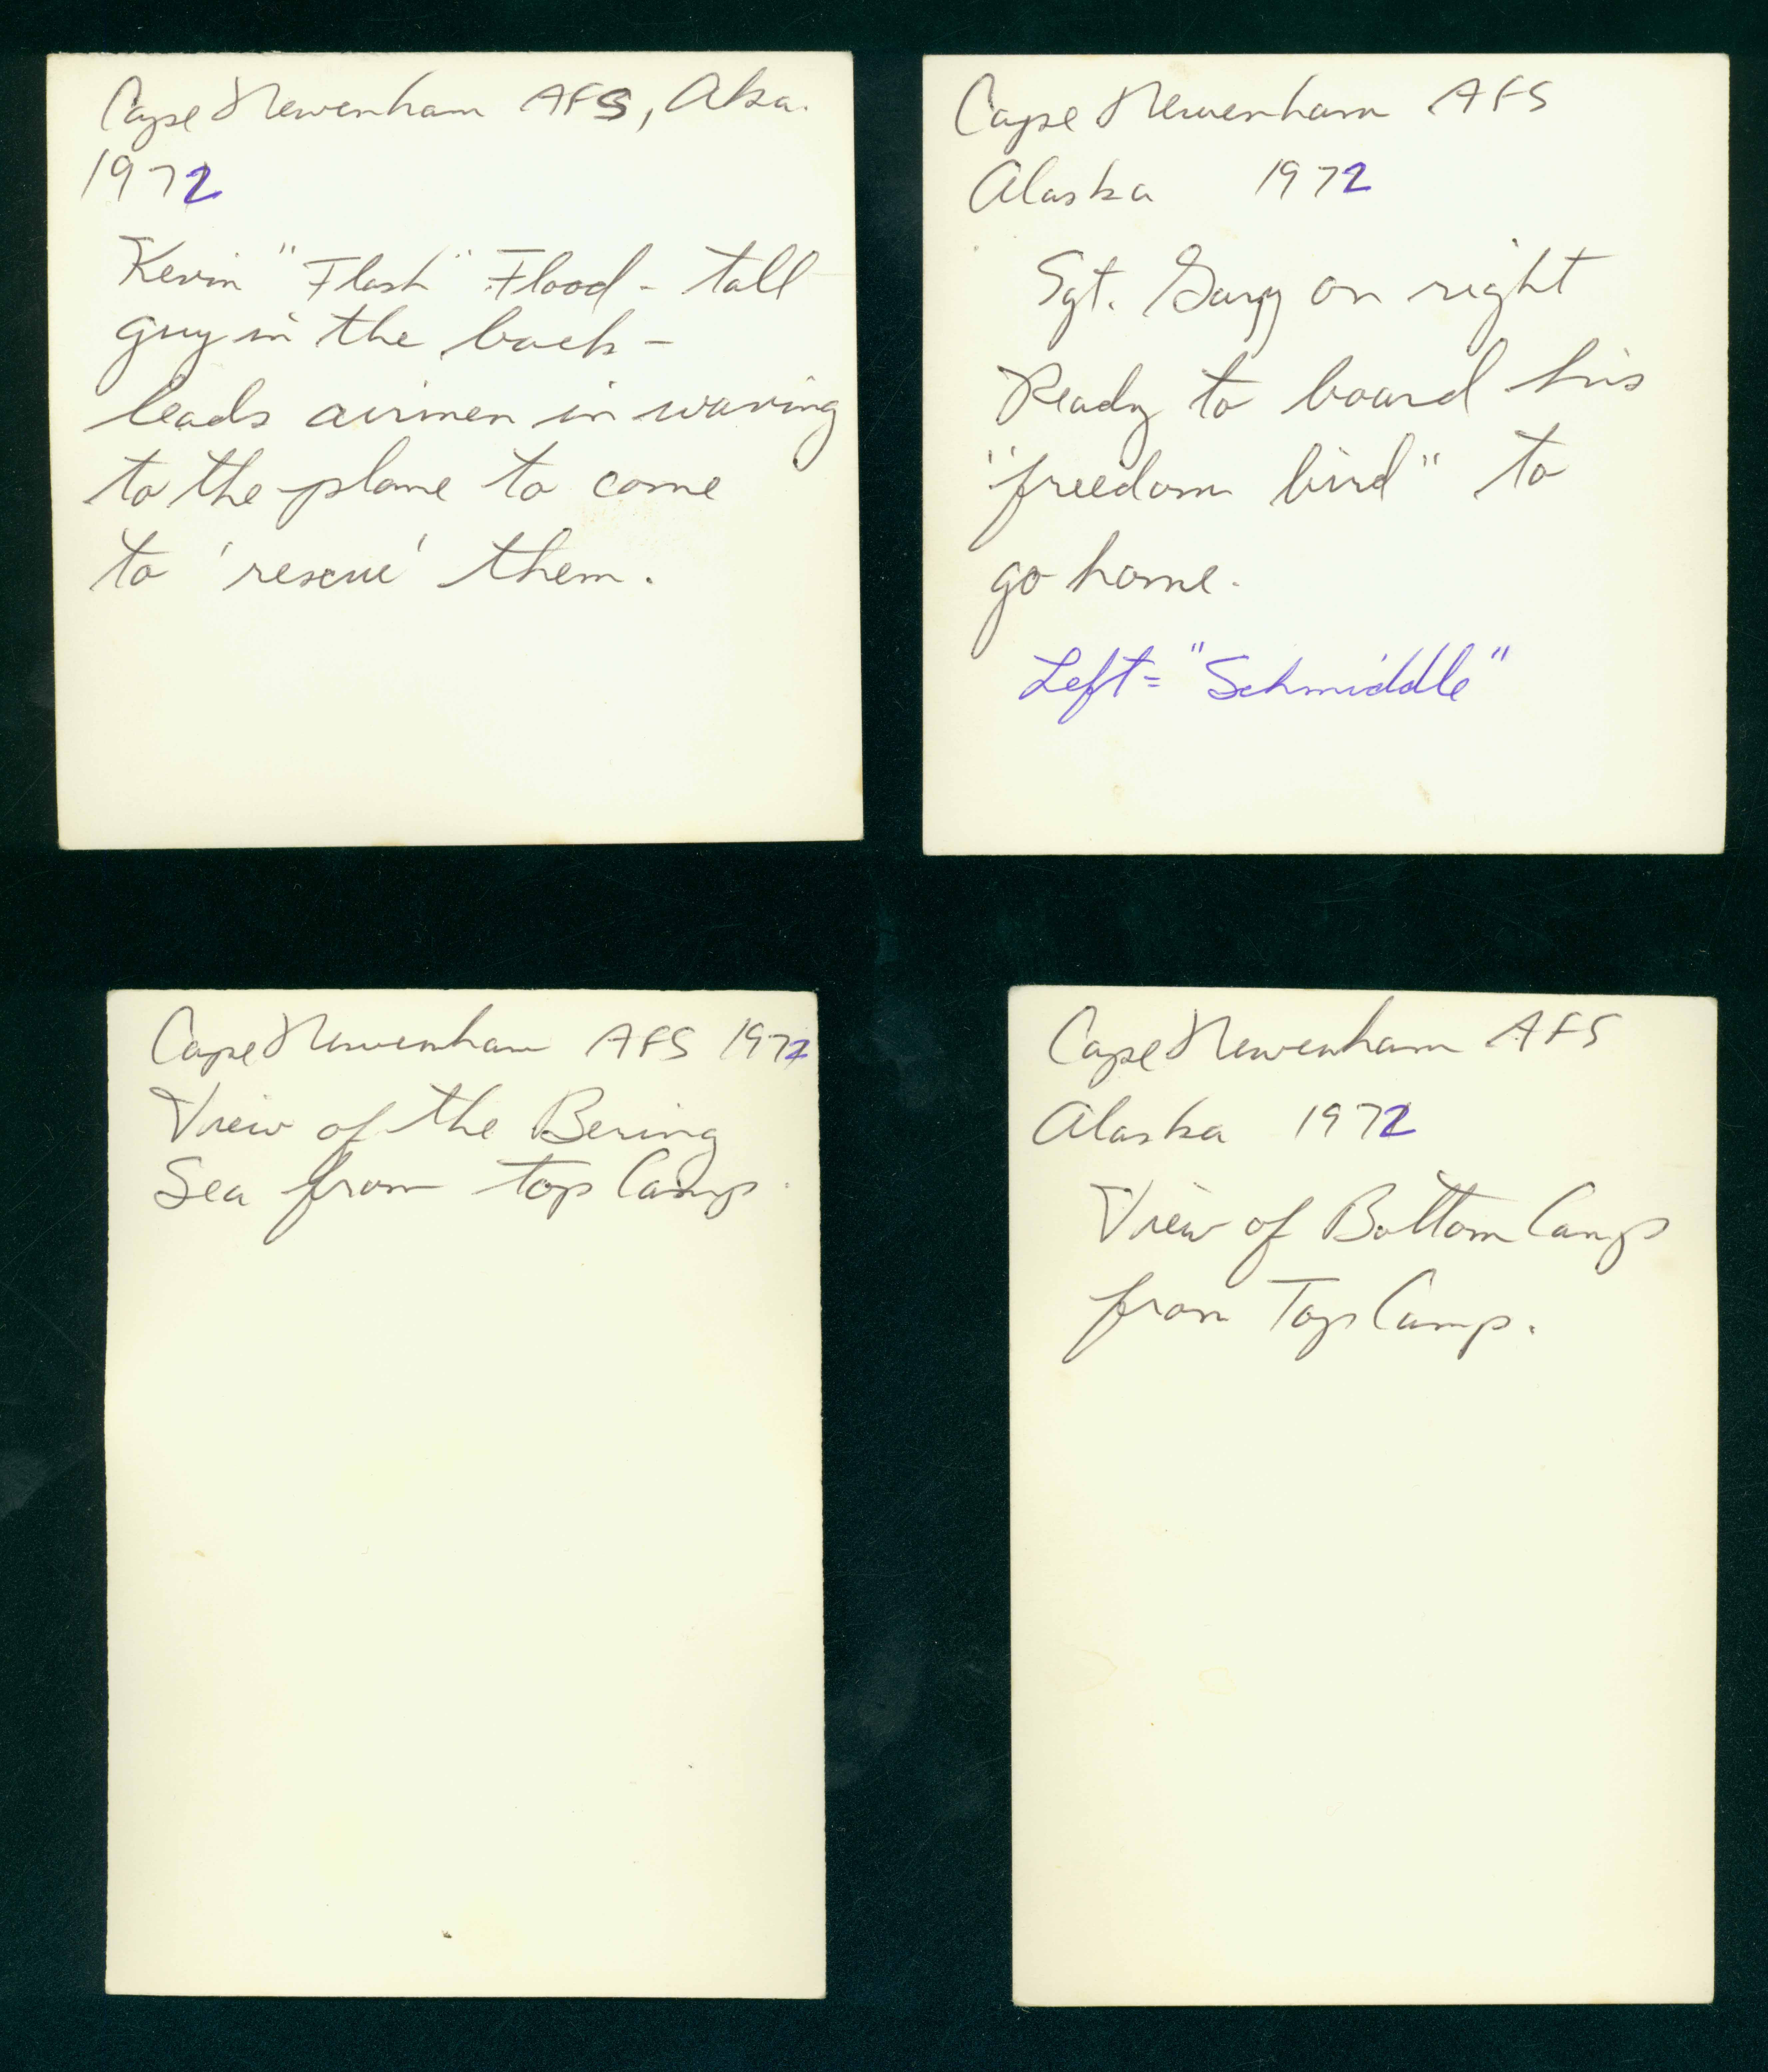 Cape Newenham AFS, Aka.
1972
Kevin "Flash" Flood - tall
guy in the back -
leads airmen in waving
to the plane to come
to 'rescue' them.
Cape Newenham AFS
Alaska 1972
Sgt. on right
Ready to board his
"freedom bird" to
go home.
Left = "Schmiddle"
Cape Newenham AFS 1972
View of the Bering
Sea from top Camp.
Cape Newenham AFS
Alaska 1972
View of Bottom Camp
from Top Camp.